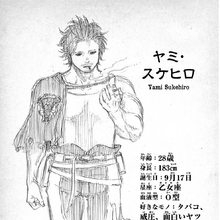 ヤミ・
スケヒロ
Yami Sukehiro
年齢：28歳
身長：183㎝
誕生日：9月17日
星座：乙女座
血液型：O型
好きなモノ：タバコ、
威圧、面白いヤツ